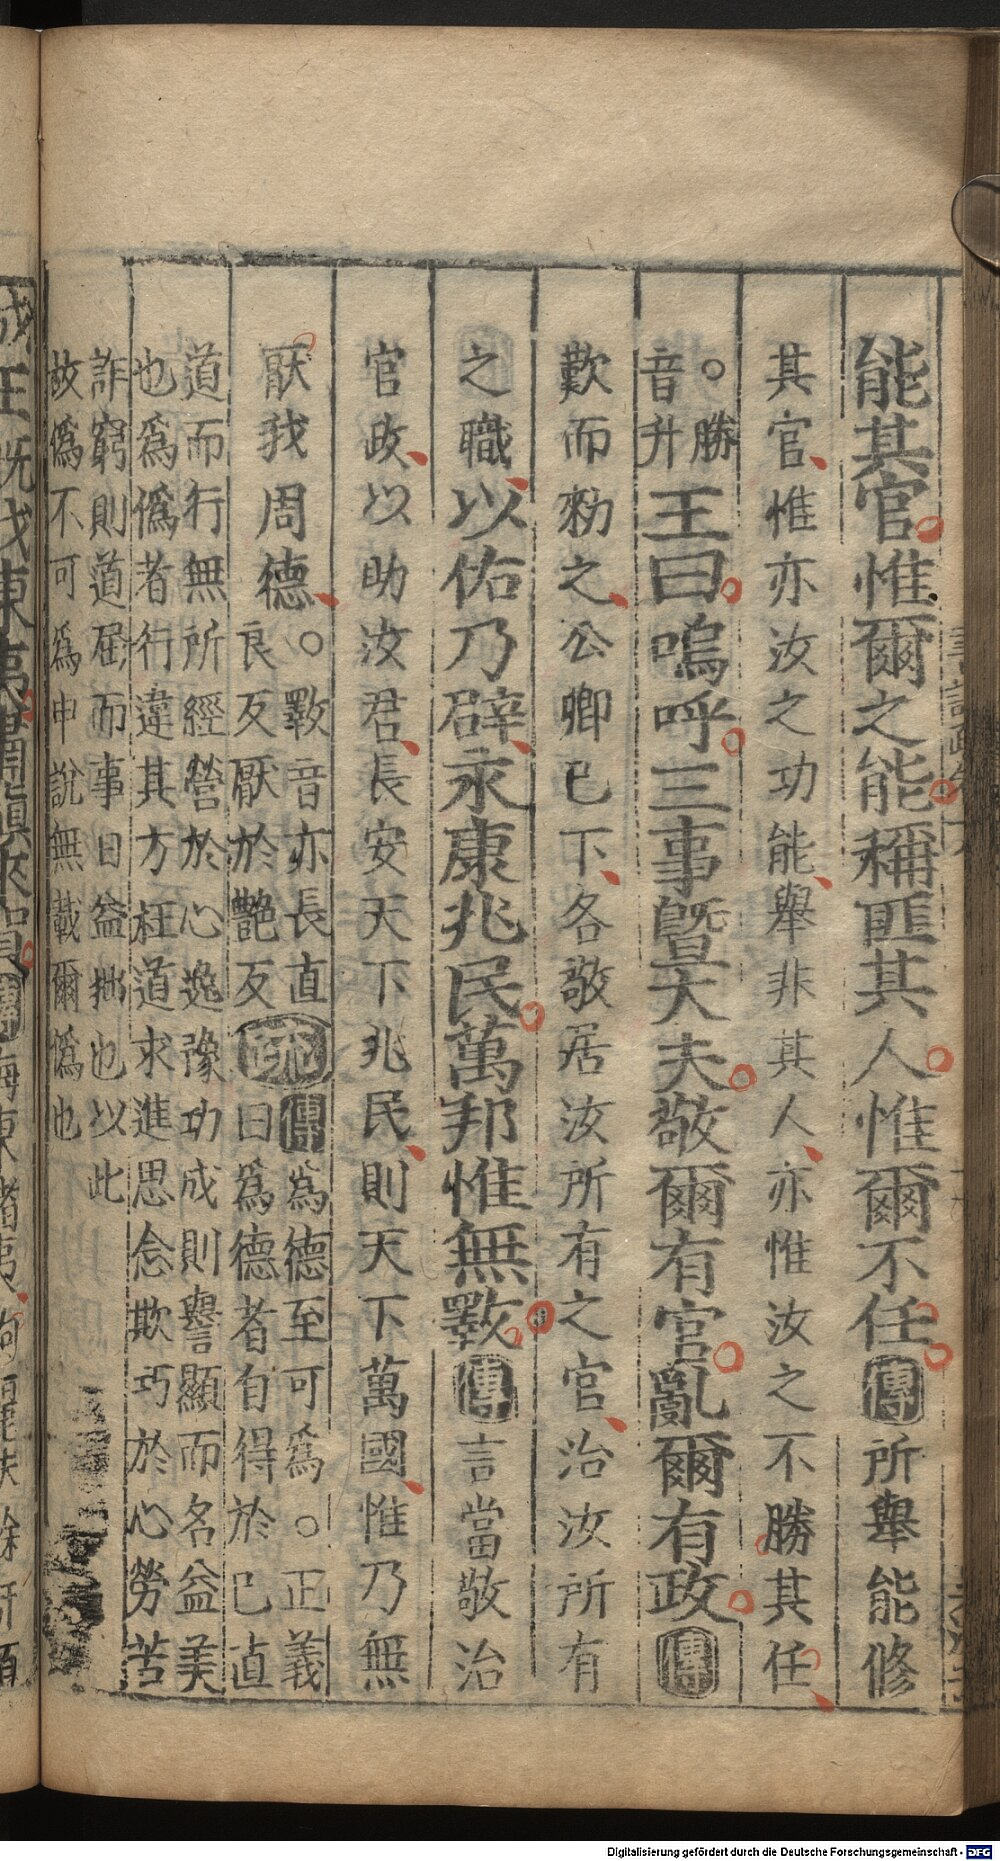 能其官惟爾之能稱匪其人惟爾不任傳所舉能修
其官惟亦汝之功能舉非其人亦惟汝之不勝其任
。勝
音升王曰嗚呼三事曁大夫敬爾有官亂爾有政傳
歎而勑之公卿已下各敬居汝所有之官治汝所有
之職以佑乃辟永康兆民萬邦惟無斁傳言當敬治
官政以助汝君長安天下兆民則天下萬國惟乃無
厭我周德。斁音亦長直
良反厭於艷反疏傳爲德至可爲。正義
曰爲德者自得於己直
道而行無所經營於心逸豫功成則譽顯而名益美
也爲僞者行違其方枉道求進思念欺巧於心勞苦
詐窮則道屈而事日益拙也以此
故爲僞不可爲申說無載爾僞也
成王旣伐東夷肅愼來賀傳海東諸夷駒麗扶餘馯貊
Digitalisierung gefördert durch die Deutsche Forschungsgemeinschaft - DFG